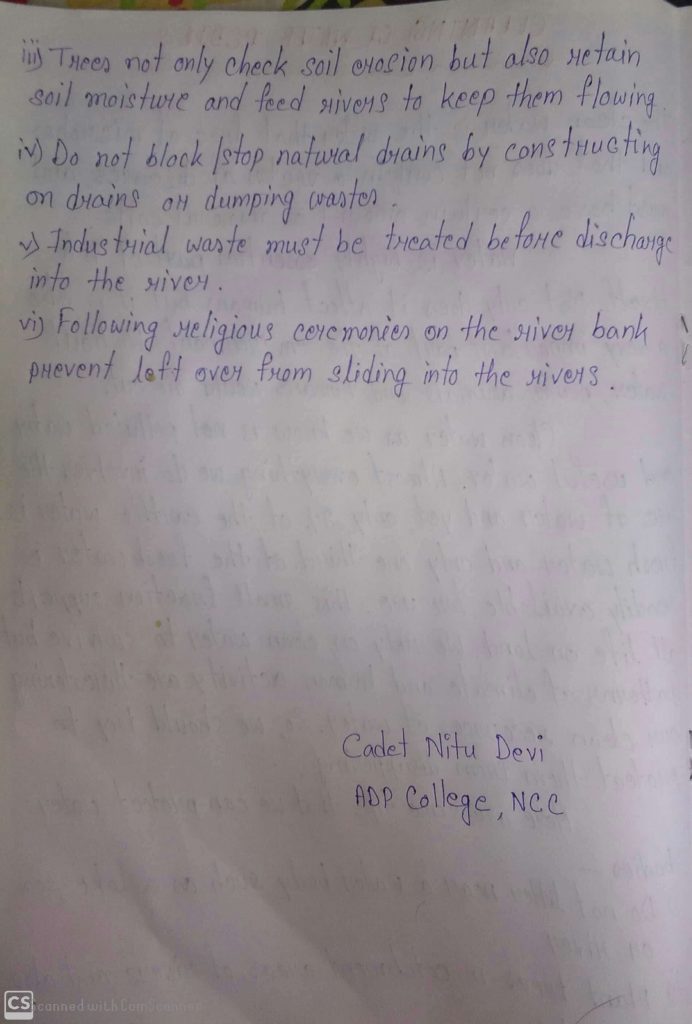 iii) Trees not only check soil erosion but also retain
soil moisture and feed rivers to keep them flowing.
iv) Do not block/stop natural drains by constructing
on drains or dumping wastes.
v) Industrial waste must be treated before discharge
into the river.
vi) Following religious ceremonies on the river bank
prevent left over from sliding into the rivers.
Cadet Nitu Devi
ADP College, NCC
CS Scanned with CamScanner